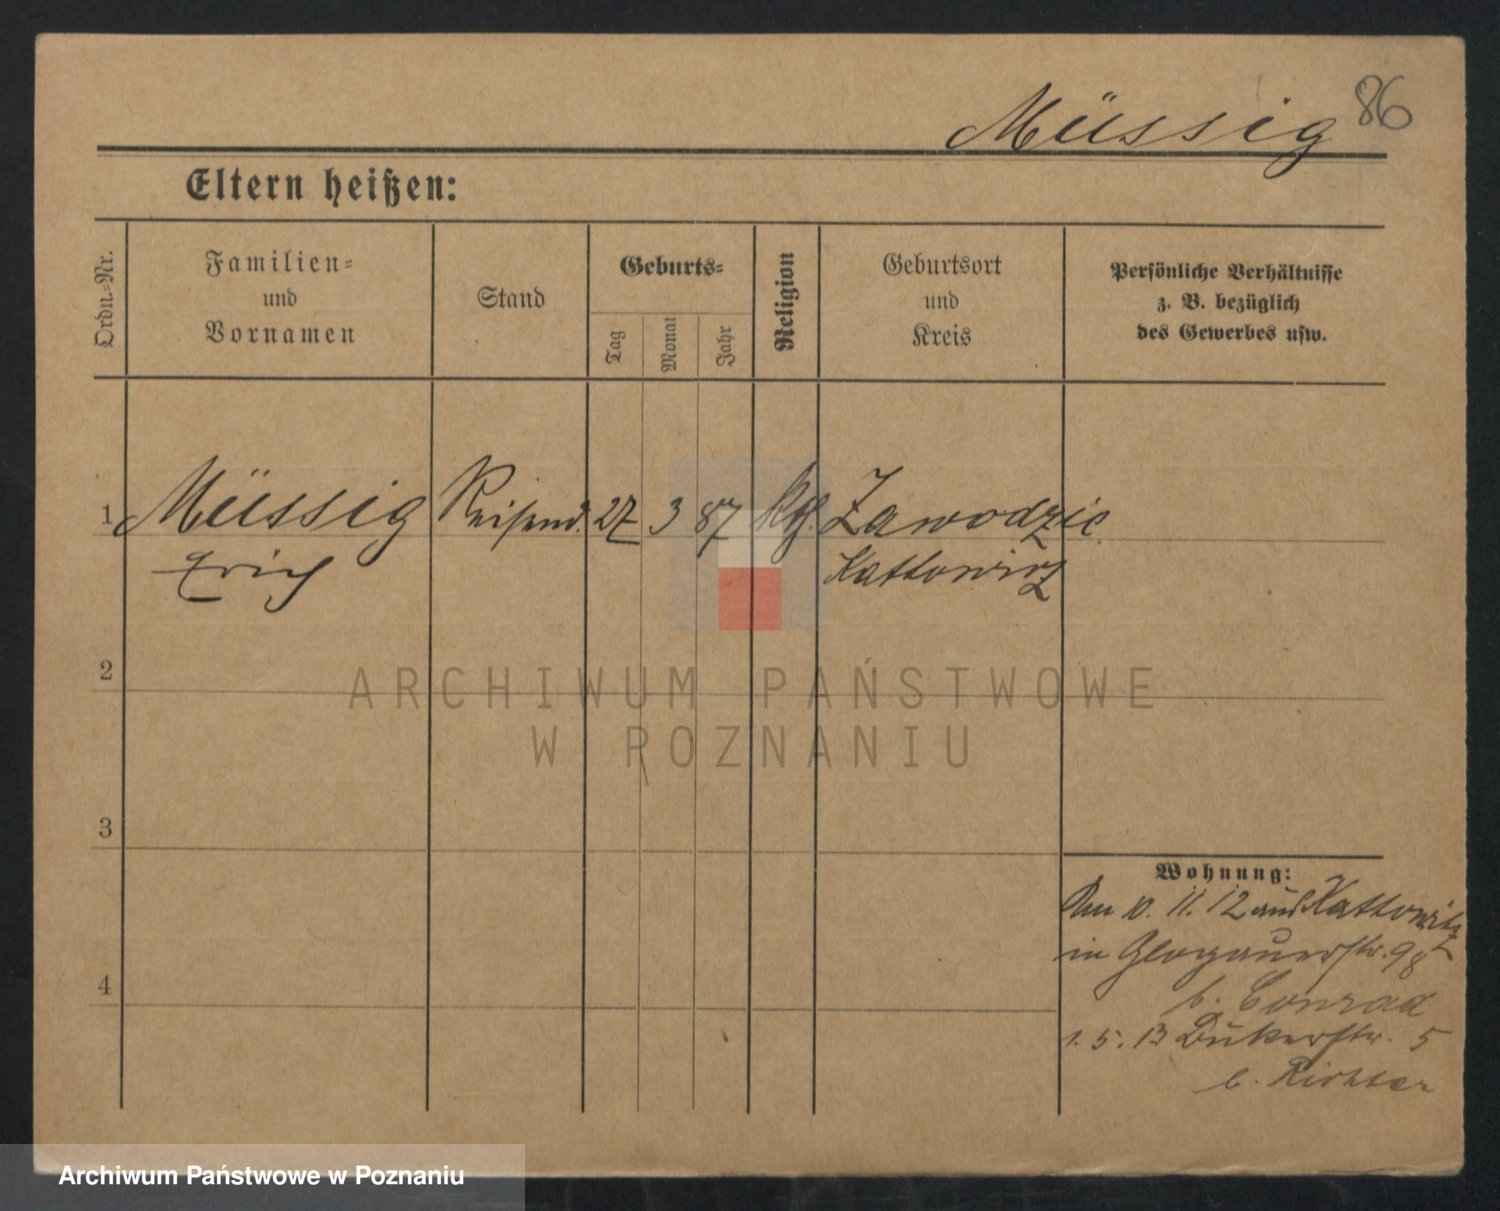 Müssig 86
Eltern heißen:
Ordn.-Nr.
Familien-
und
Vornamen
Stand
Geburts-
Tag
Monat
Jahr
Religion
Geburtsort
und
Kreis
Persönliche Verhältnisse
z. B. bezüglich
des Gewerbes usw.
1 Müssig Reisend. 27 3 87 kth. Zawodzie
Erich Kattowitz
2
ARCHIWUM PAŃSTWOWE
W POZNANIU
3
4
Wohnung:
Am 10. 11. 12 aus Kattowitz
in Glogauerstr. 98
b. Conrad
1. 5. 13 Bukerstr. 5
b. Richter
Archiwum Państwowe w Poznaniu